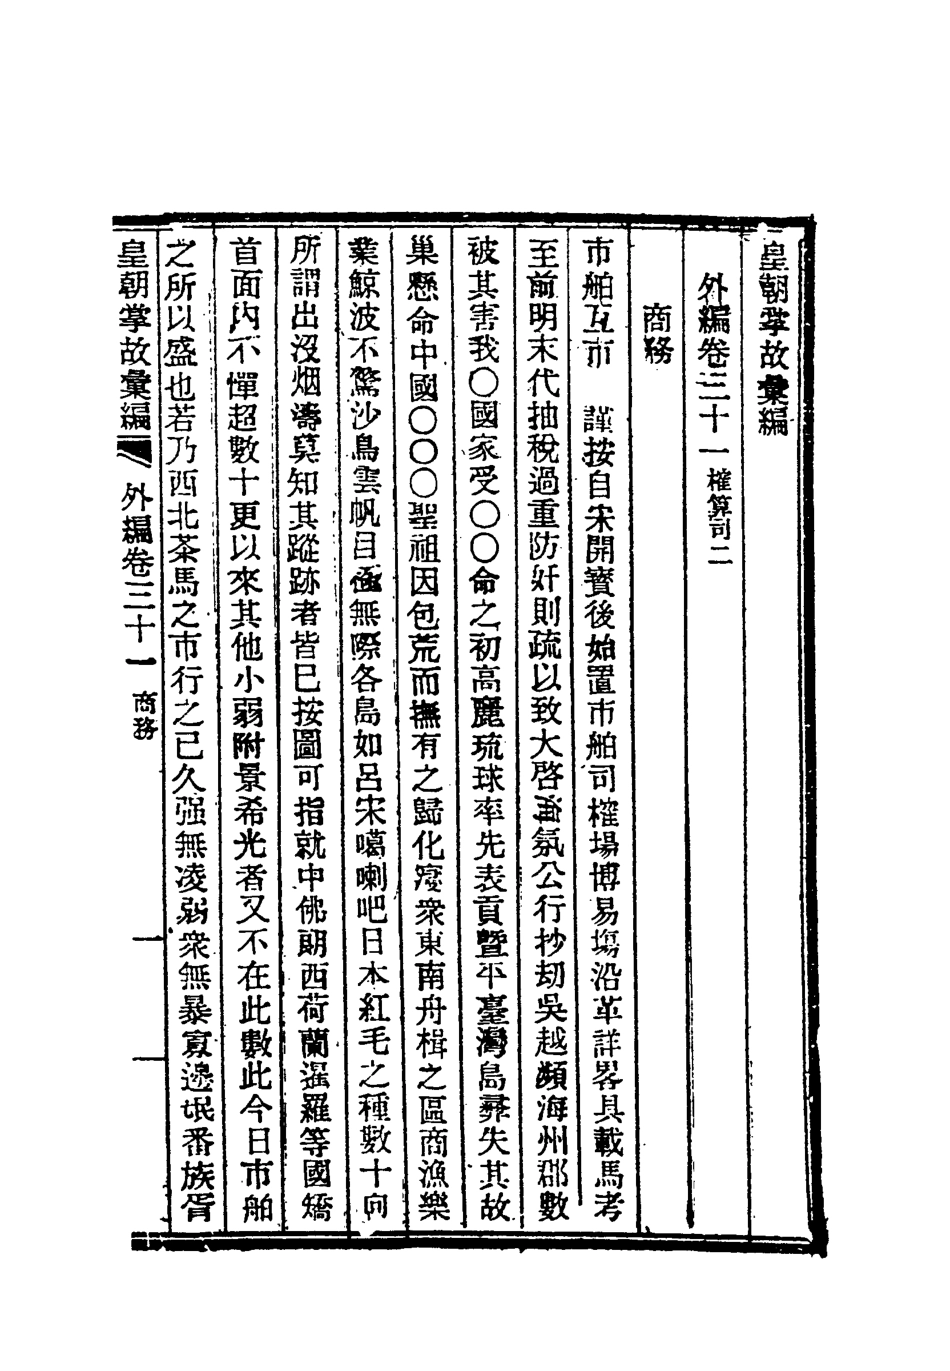 皇朝掌故彙編
外編卷三十一榷算司二
商務
市舶互市　謹按自宋開寶後始置市舶司榷場博易塲沿革詳畧具載馬考
至前明末代抽稅過重防奸則疏以致大啓海氛公行抄刼吳越瀕海州郡數
被其害我〇國家受〇〇命之初高麗琉球率先表貢暨平臺灣島彝失其故
巢懸命中國〇〇〇聖祖因包荒而撫有之歸化寖衆東南舟楫之區商漁樂
業鯨波不驚沙鳥雲帆目極無際各島如呂宋噶喇吧日本紅毛之種數十向
所謂出沒烟濤莫知其蹤跡者皆已按圖可指就中佛朗西荷蘭暹羅等國矯
首面內不憚超數十更以來其他小弱附景希光者又不在此數此今日市舶
之所以盛也若乃西北茶馬之市行之已久强無凌弱衆無暴寡邊氓番族胥
皇朝掌故彙編　外編卷三十一　商務　一